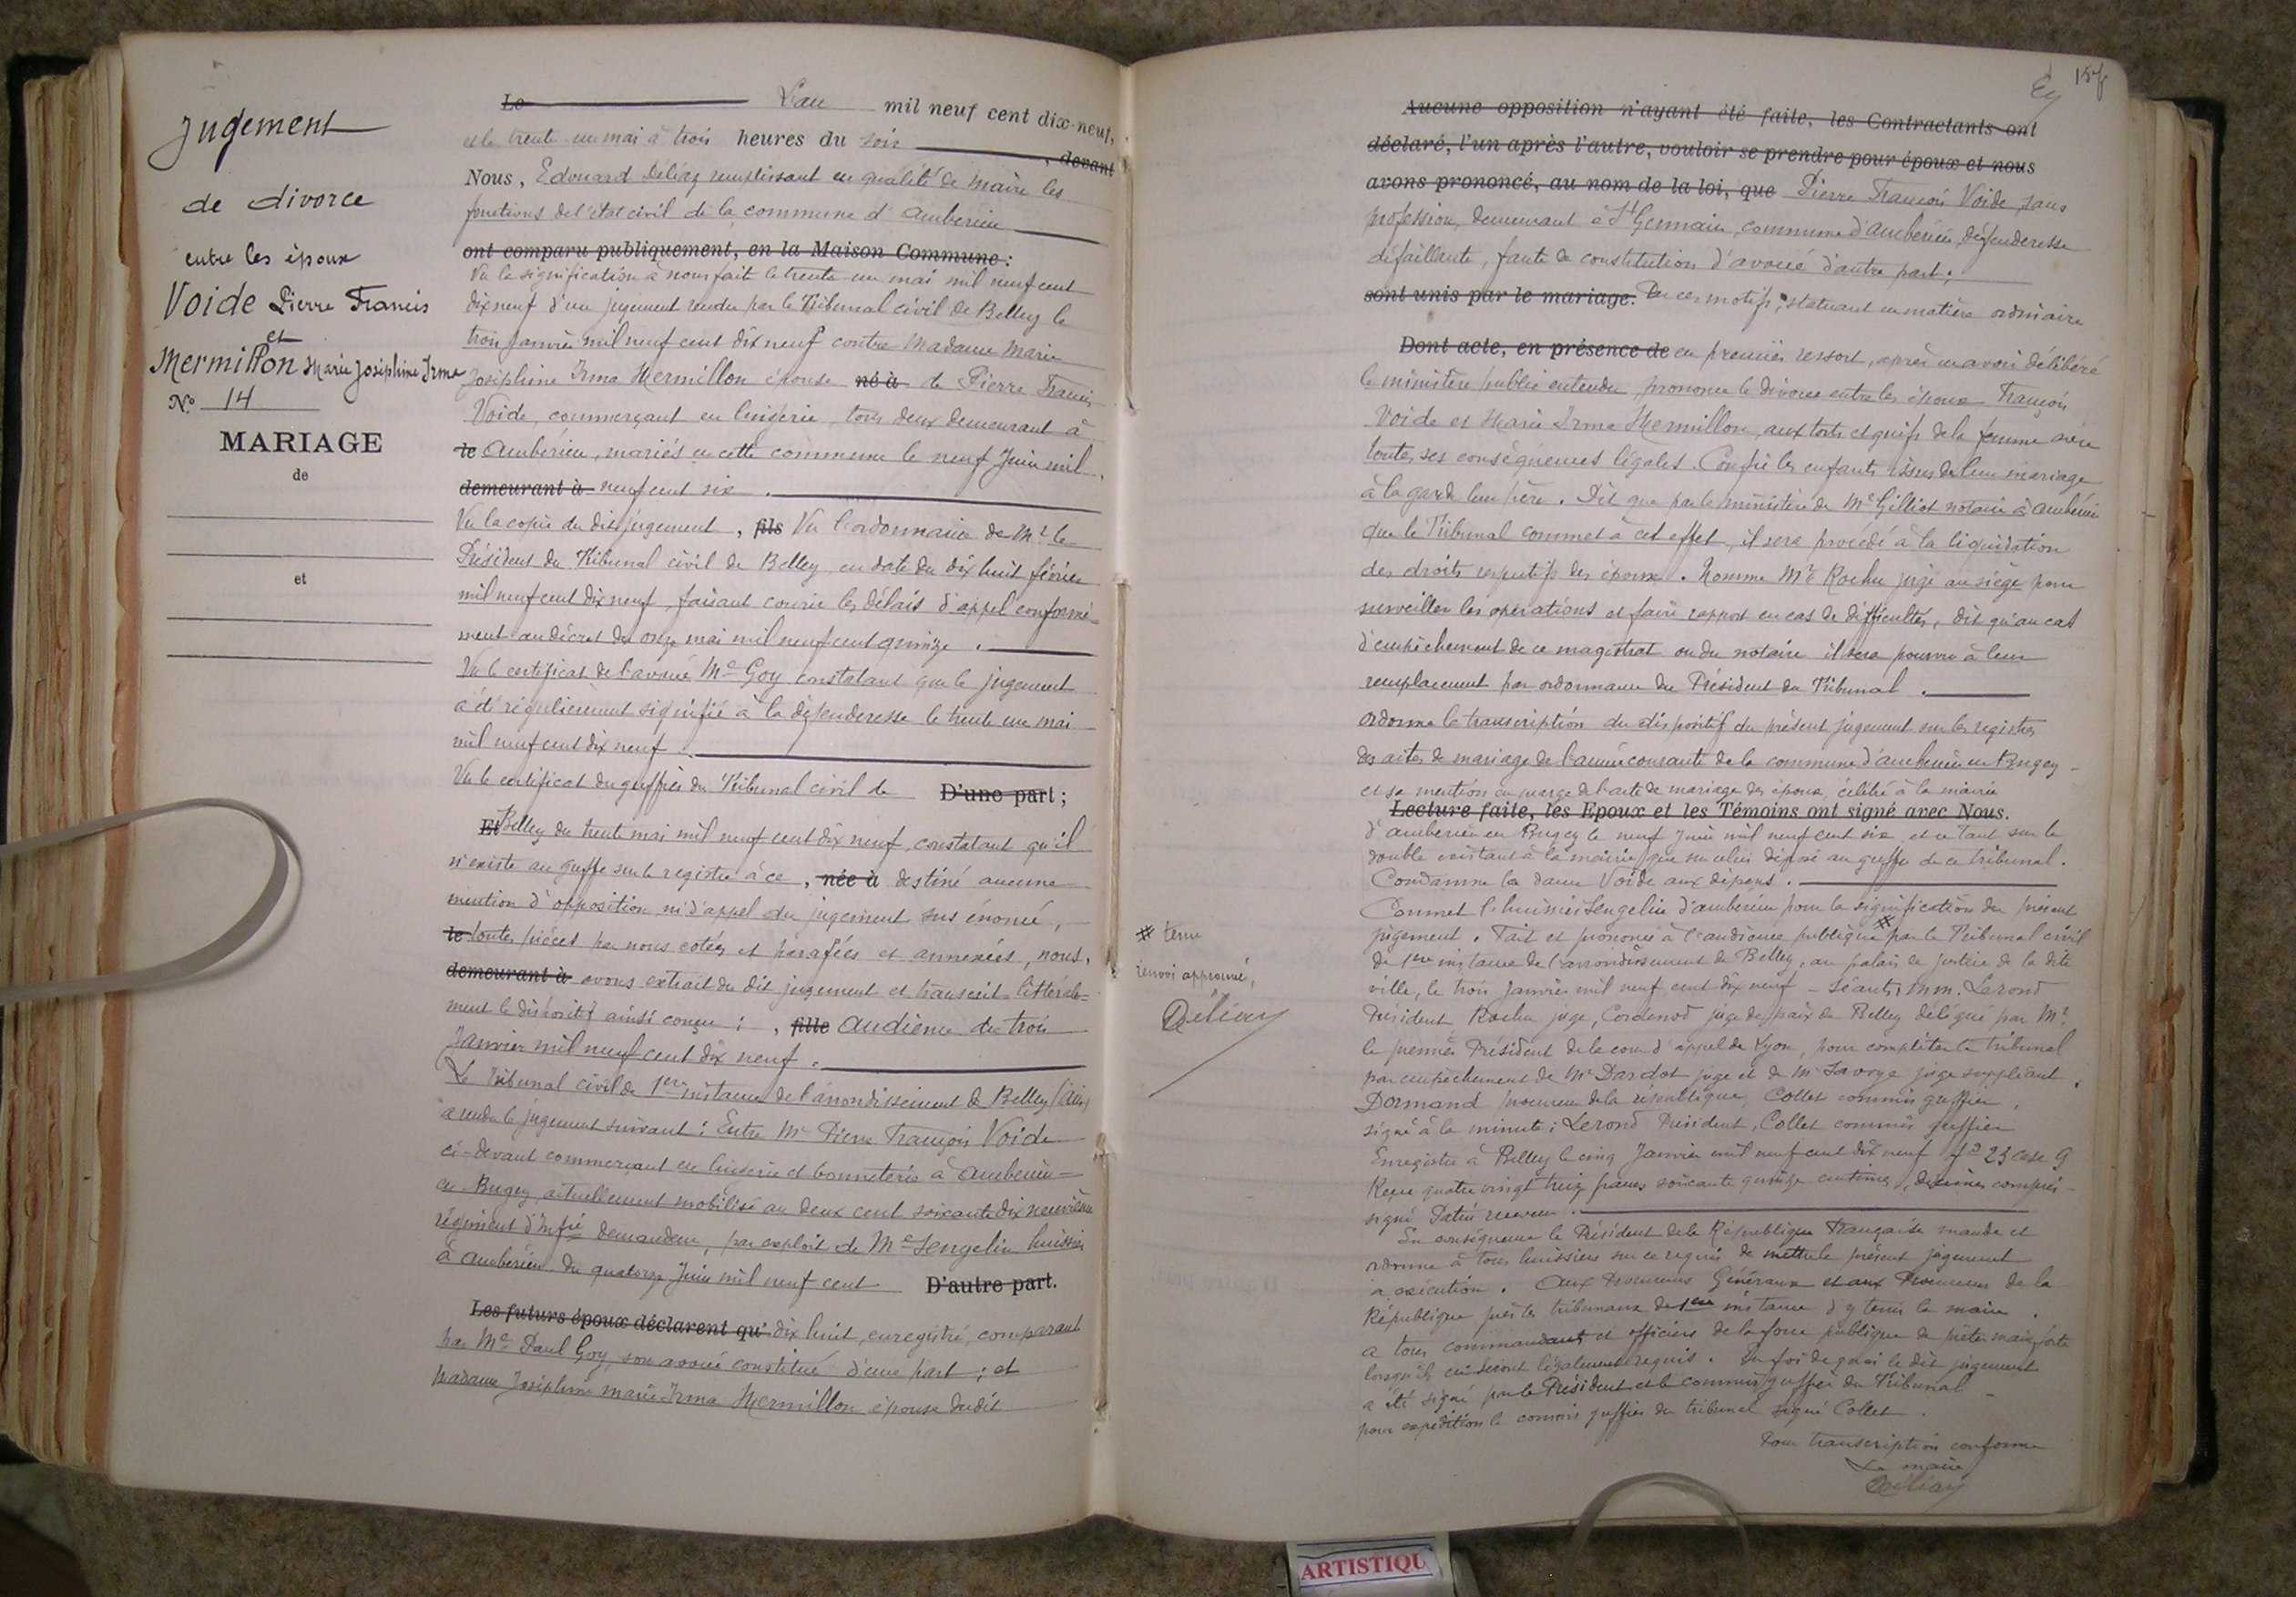 Jugement
de divorce
entre les époux
Voide Pierre Francis
et
Mermillon Marie Joséphine Irma
N.º 14
MARIAGE
de
et
Le L'an mil neuf cent dix-neuf,
et le trente un mai à trois heures du soir , devant
Nous, Edouard Déliaz remplissant en qualité de maire les
fonctions de l'état civil de la commune d'ambérieu
ont comparu publiquement, en la Maison Commune :
Vu la signification à nous fait le trente un mai mil neuf cent
dix neuf d'un jugement rendu par le Tribunal civil de Belley le
trois janvier mil neuf cent dix neuf contre Madame Marie
Joséphine Irma Mermillon épouse né à de Pierre Francis
Voide, commerçant en lingerie, tous deux demeurant à
le Ambérieu, mariés en cette commune le neuf Juin mil
demeurant à neuf cent six.
Vu la copie du dit jugement, fils Vu l'ordonnance de Mr le
Président du Tribunal civil de Belley en date du dix huit février
mil neuf cent dix neuf, faisant courir les délais d'appel conformé-
ment au décret du onze mai mil neuf cent quinze.
Vu le certificat de l'avoué Me Goy constatant que le jugement
a été régulièrement signifié à la défenderesse le trente un mai
mil neuf cent dix neuf.
Vu le certificat du greffier du Tribunal civil de D'une part ;
Et Belley du trente mai mil neuf cent dix neuf, constatant qu'il
n'existe au greffe sur le registre à ce, née à destiné aucune
mention d'opposition ni d'appel du jugement sus énoncé,
le toutes pièces par nous cotées et parafées et annexées, nous,
demeurant à avons extrait du dit jugement et transcrit littérale-
ment le dispositif ainsi conçu : , fille audience du trois
Janvier mil neuf cent dix neuf.
Le Tribunal civil de 1ere instance de l'arrondissement de Belley (Ain)
a rendu le jugement suivant : Entre Mr Pierre François Voide
ci-devant commerçant en lingerie et bonneterie à Ambérieu-
en Bugey actuellement mobilisé au deux cent soixante dix neuvième
régiment d'Infie demandeur, par exploit de Me Lengelin huissier
à Ambérieu du quatorze Juin mil neuf cent D'autre part.
Les futurs époux déclarent qu' dix huit, enregistré, comparant
par Me Paul Goy, son avoué constitué d'une part ; et
Madame Joséphine Marie Irma Mermillon épouse dudit
157
Aucune opposition n'ayant été faite, les Contractants ont
déclaré, l'un après l'autre, vouloir se prendre pour époux et nous
avons prononcé, au nom de la loi, que Pierre François Voide, sans
profession, demeurant à St Germain, commune d'Ambérieu, défenderesse
défaillante, faute de constitution d'avoué d'autre part ;
sont unis par le mariage. Par ces motifs, statuant en matière ordinaire
Dont acte, en présence de en premier ressort, après en avoir délibéré
le ministère public entendu, prononce le divorce entre les époux François
Voide et Marie Irma Mermillon, aux torts et griefs de la femme avec
toutes ses conséquences légales. Confie les enfants issus de leur mariage
à la garde leur père. Dit que par le ministère de Me Gilliot notaire à ambérieu
que le Tribunal commet à cet effet, il sera procédé à la liquidation
des droits respectifs des époux. Nomme Mr Rochu juge au siège pour
surveiller les opérations et faire rapport en cas de difficultés, dit qu'au cas
d'empêchement de ce magistrat ou du notaire il sera pourvu à leur
remplacement par ordonnance du Président du Tribunal.
ordonne la transcription du dispositif du présent jugement sur les registres
des actes de mariage de l'année courante de la commune d'ambérieu en Bugey -
et sa mention en marge de l'acte de mariage des époux, célébré à la mairie
Lecture faite, les Epoux et les Témoins ont signé avec Nous.
d'ambérieu en Bugey le neuf Juin mil neuf cent six et ce tant sur le
double existant à la mairie que sur celui déposé au greffe de ce tribunal.
Condamne la dame Voide aux dépens.
Commet l'huissier Lengelin d'ambérieu pour la signification du présent
jugement. Fait et prononcé à l'audience publique # par le Tribunal civil
de 1ere instance de l'arrondissement de Belley, au palais de justice de la dite
ville, le trois janvier mil neuf cent dix neuf - Séants MM. Lerond
Président Rochu juge, Cordenod juge de paix de Belley délégué par Mr
le premier Président de la cour d'appel de Lyon, pour compléter le tribunal
par empêchement de Mr Dardot juge et de Mr Savoye juge suppléant.
Dormand procureur de la république, Collet commis greffier.
signé à la minute : Lerond Président, Collet commis greffier
Enregistré à Belley le cinq Janvier mil neuf cent dix neuf fo 23 case 9
Reçu quatre vingt treize francs soixante quinze centimes, décimes compris -
signé receveur.
En conséquence le Président de la République Française mande et
ordonne à tous huissiers sur ce requis de mettre le présent jugement
à exécution. Aux Procureurs Généraux et aux Procureurs de la
République près les tribunaux de 1ere instance d'y tenir la main.
a tous commandants et officiers de la force publique de prêter main forte
lorsqu'ils en seront légalement requis. En foi de quoi le dit jugement
a été signé par le Président et le commis greffier du Tribunal -
pour expédition le commis greffier du tribunal signé Collet.
Pour transcription conforme
Le maire
Déliaz
# tenue
renvoi approuvé,
Déliaz
ARTISTIQU